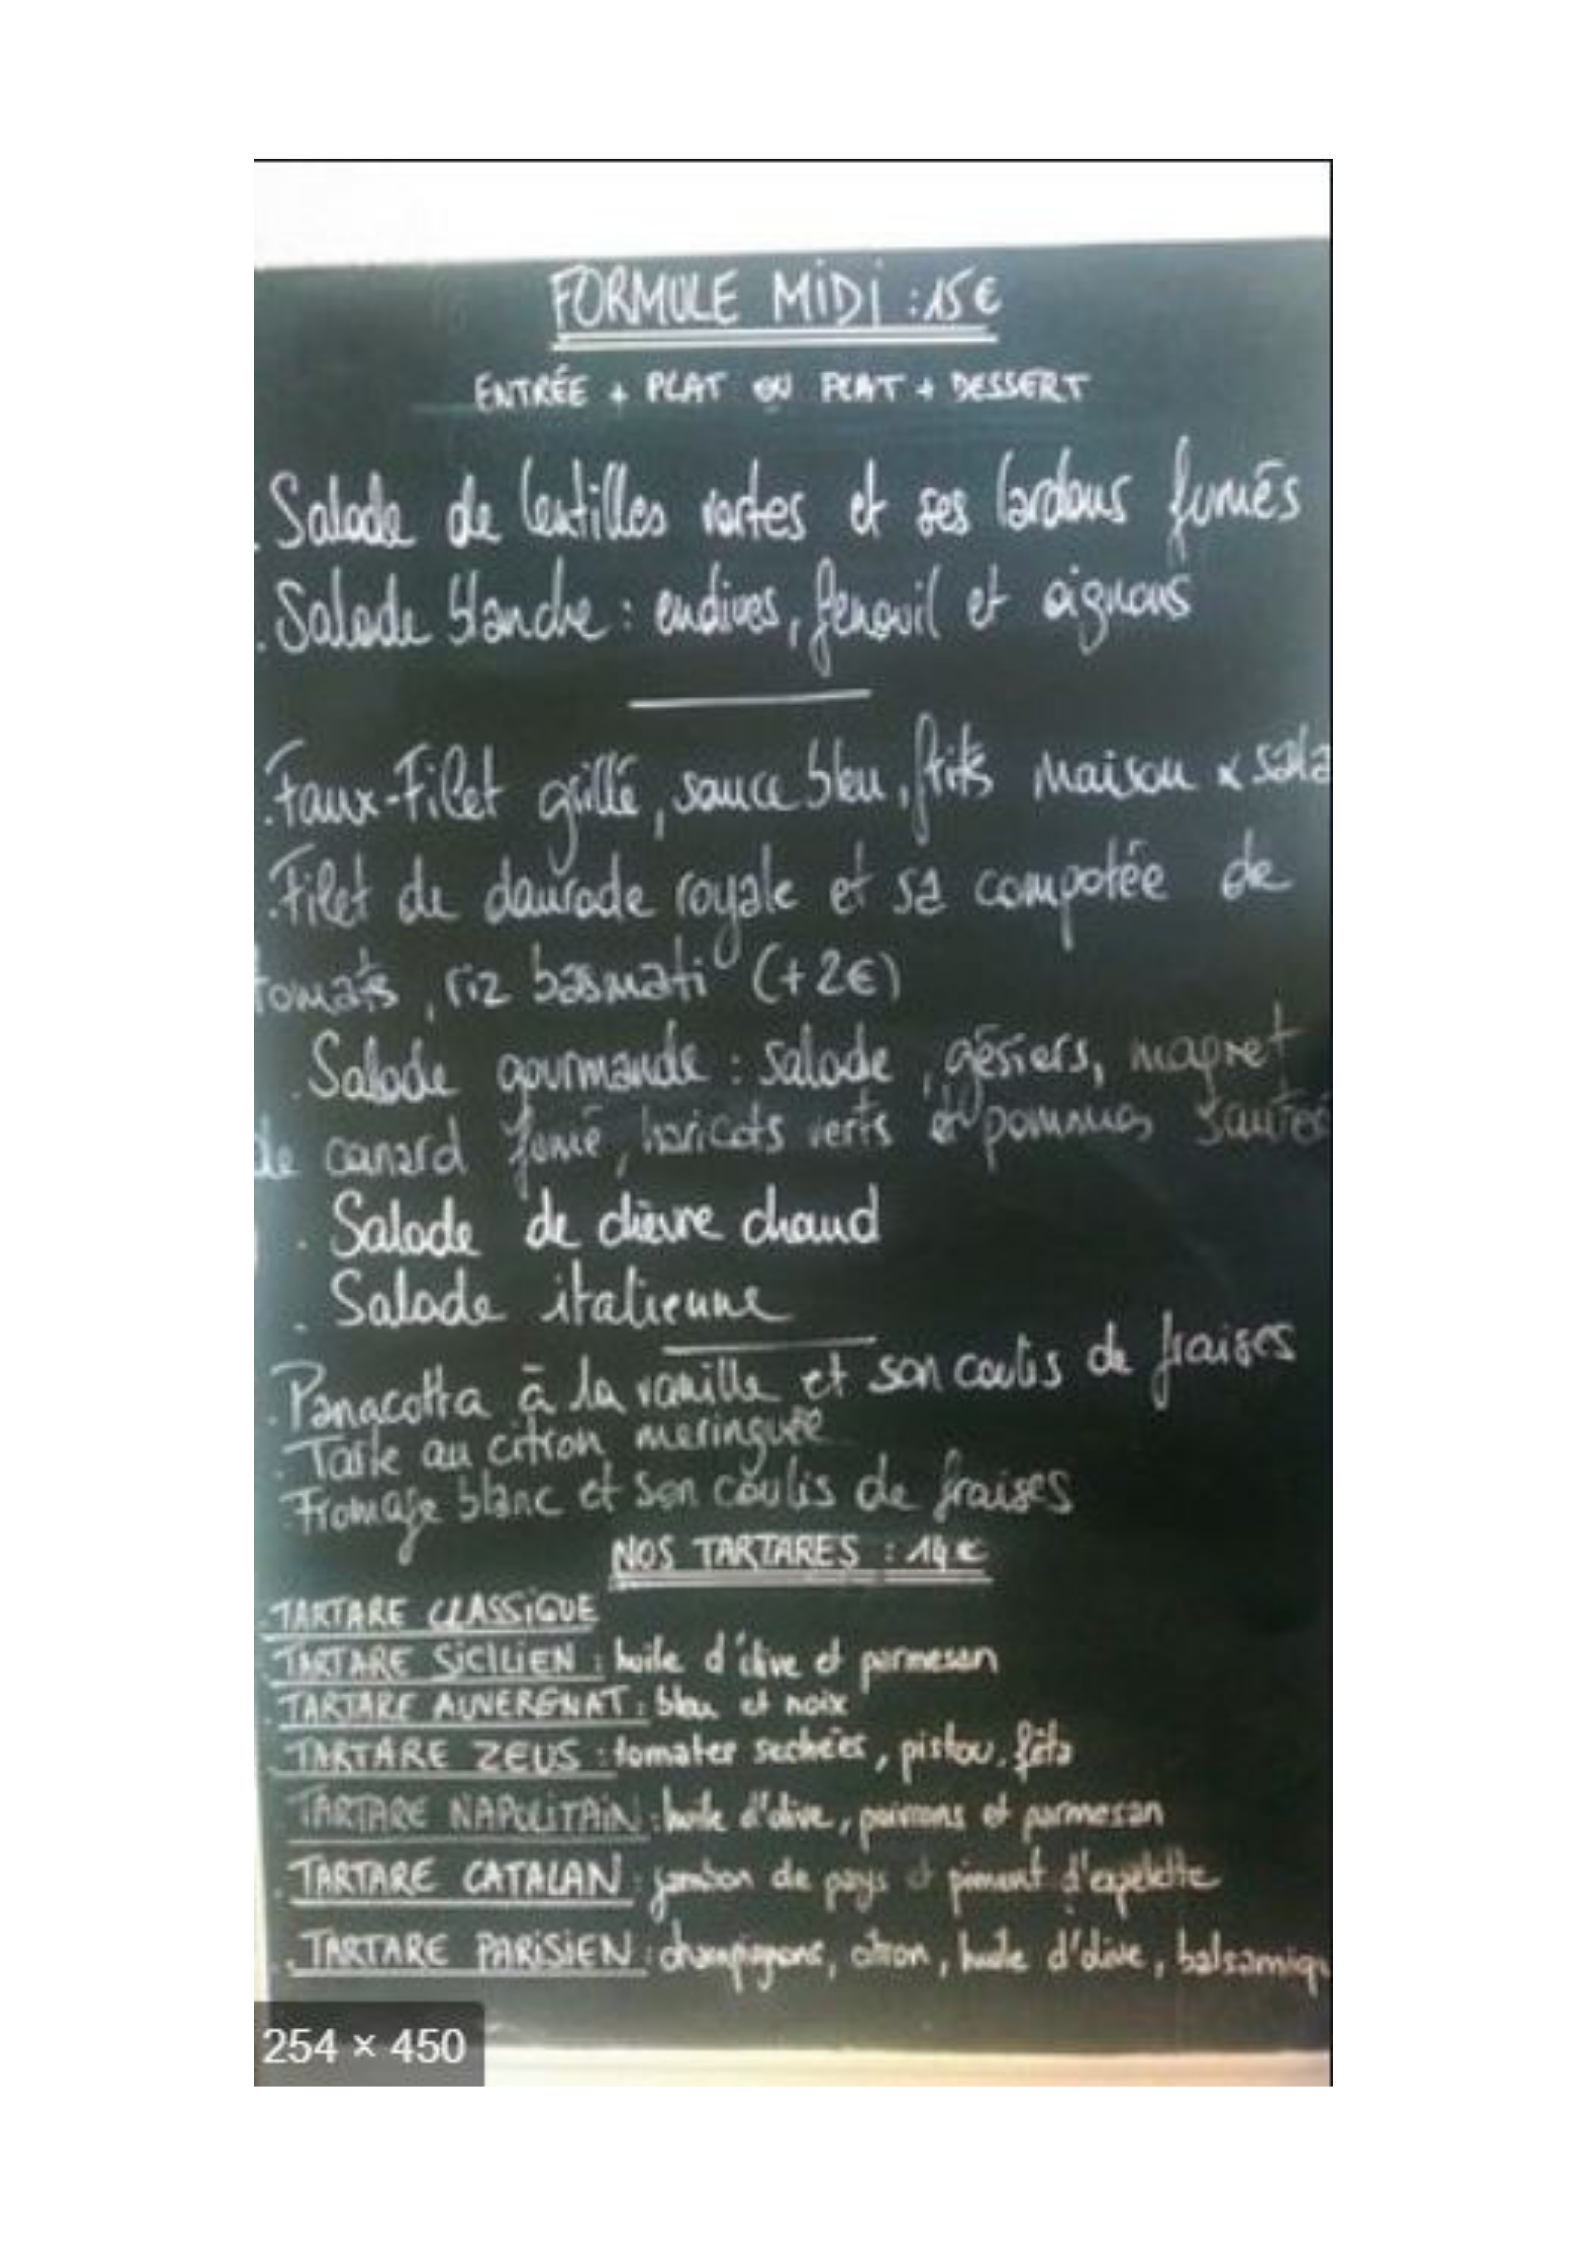 FORMULE MiDi : 15€
ENTRÉE + PLAT OU PLAT + DESSERT
. Salade de lentilles vertes et ses lardons fumés
. Salade blanche : endives, fenouil et oignons
. Faux-Filet grillé, sauce bleu, frites maison & sala
. Filet de daurade royale et sa compotée de
tomates, riz basmati (+2€)
. Salade gourmande : salade, gésiers, magret
de canard fumé, haricots verts et pommes sautées
. Salade de chèvre chaud
. Salade italienne
. Panacotta à la vanille et son coulis de fraises
. Tarte au citron meringuée
. Fromage blanc et son coulis de fraises
NOS TARTARES : 14€
. TARTARE CLASSiQUE
. TARTARE SiCILIEN : huile d'olive et parmesan
. TARTARE AUVERGNAT : bleu et noix
. TARTARE ZEUS : tomates sechées, pistou, féta
. TARTARE NAPOLITAIN : huile d'olive, poivrons et parmesan
. TARTARE CATALAN : jambon de pays et piment d'espelette
. TARTARE PARiSiEN : champignons, citron, huile d'olive, balsamiqu
254 × 450